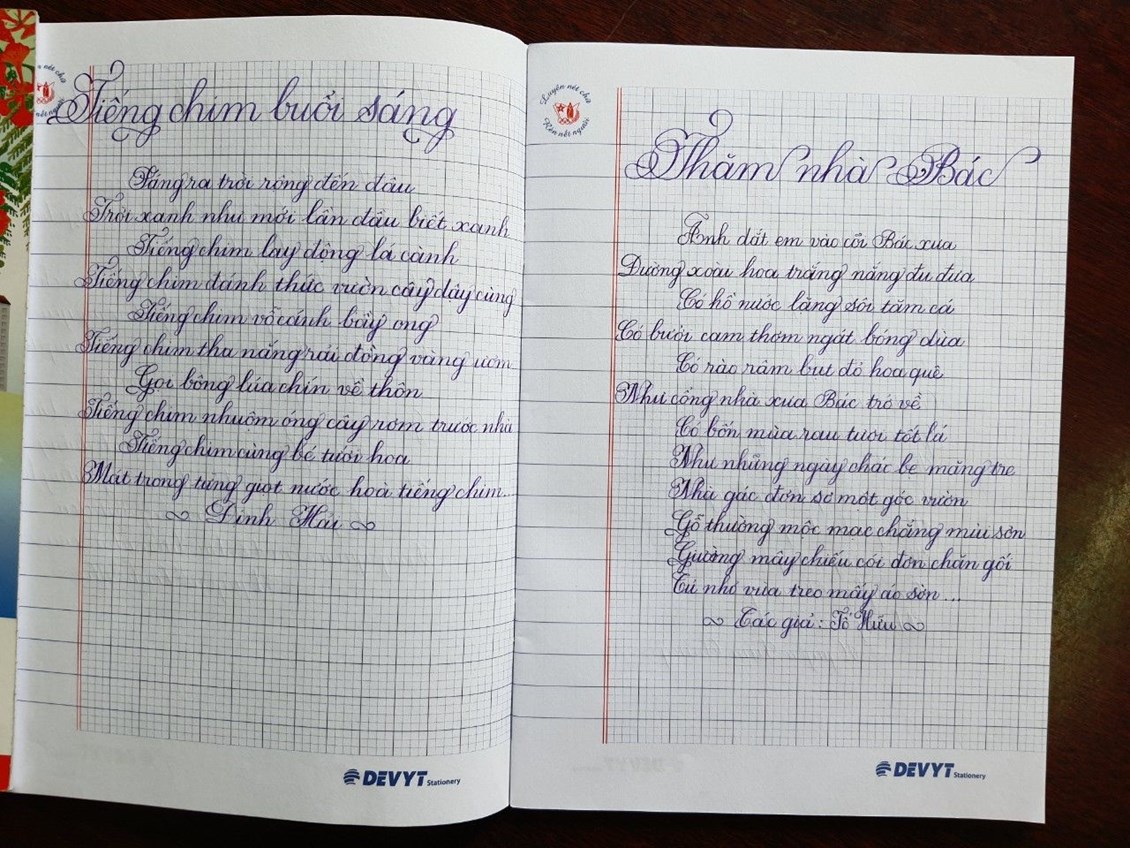 Tiếng chim buổi sáng
Sáng ra trời rộng đến đâu
Trời xanh như mới lần đầu biết xanh
Tiếng chim lay động lá cành
Tiếng chim đánh thức vườn cây dậy cùng
Tiếng chim vỗ cánh bầy ong
Tiếng chim tha nắng rải đồng vàng ươm
Gọi bông lúa chín về thôn
Tiếng chim nhuộm óng cây rơm trước nhà
Tiếng chim cùng bé tưới hoa
Mát trong từng giọt nước hoà tiếng chim...
Định Hải
DEVYT Stationery
Luyện nét chữ
Rèn nết người
Thăm nhà Bác
Anh dắt em vào cõi Bác xưa
Đường xoài hoa trắng nắng đu đưa
Có hồ nước lặng sôi tăm cá
Có bưởi cam thơm ngát bóng dừa
Có rào râm bụt đỏ hoa quê
Như cổng nhà xưa Bác trở về
Có bốn mùa rau tươi tốt lá
Như những ngày cháo bẹ măng tre
Nhà gác đơn sơ một góc vườn
Gỗ thường mộc mạc chẳng mùi sơn
Giường mây chiếu cói đơn chăn gối
Tủ nhỏ vừa treo mấy áo sờn...
Tác giả: Tố Hữu
DEVYT Stationery